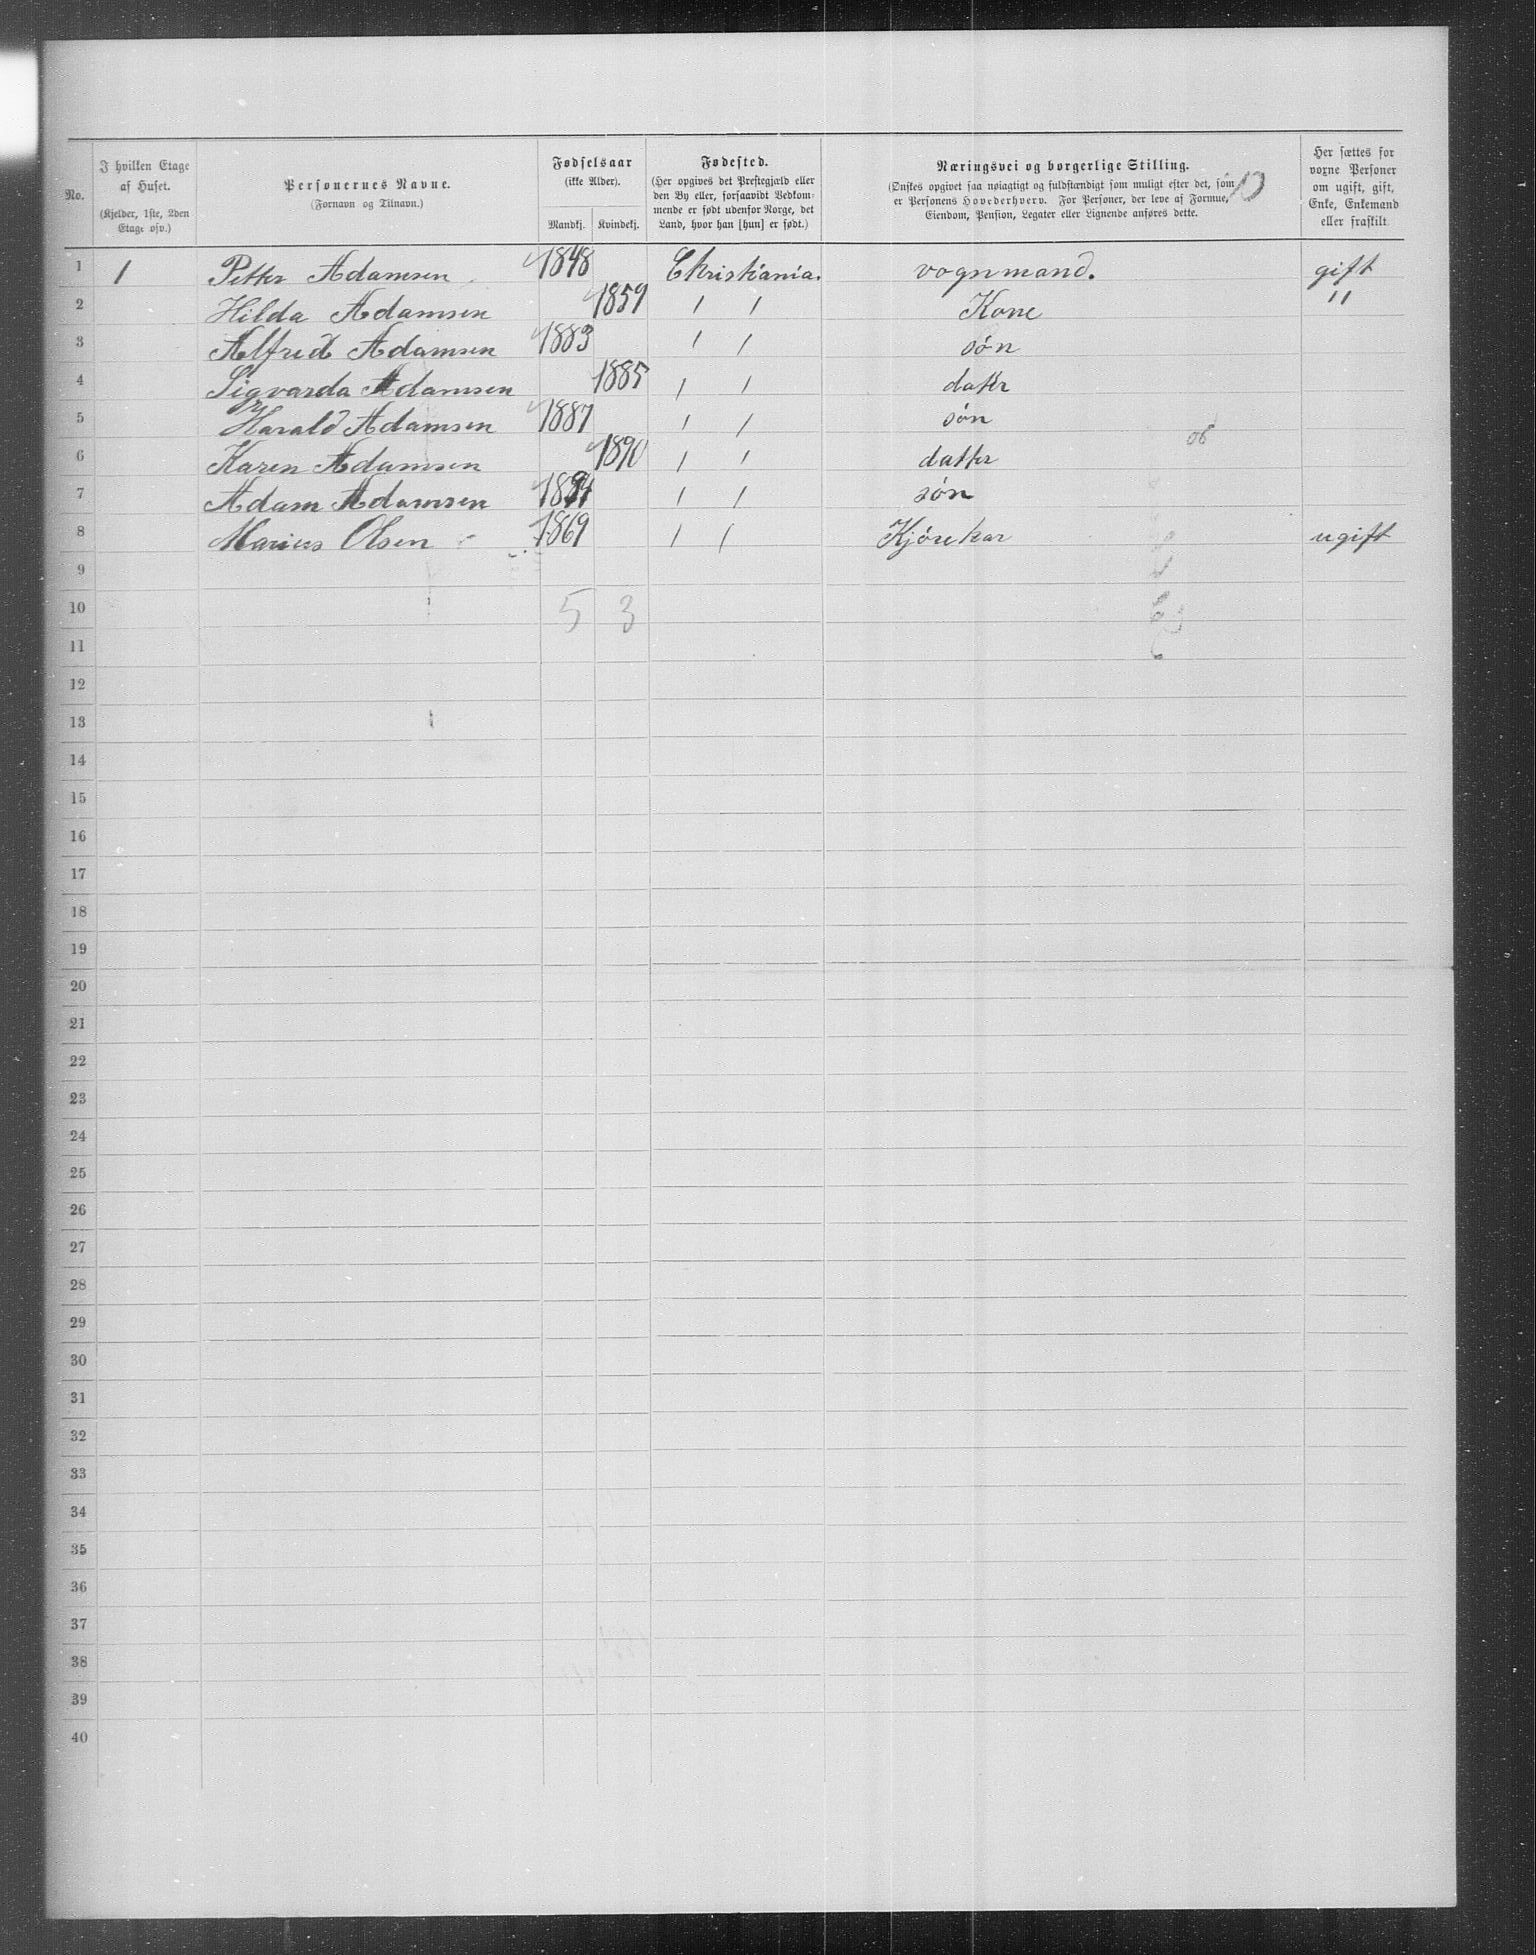 No.
I hvilken Etage af Huset.
(Kjelder, 1ste, 2den Etage osv.)
Personernes Navne.
(Fornavn og Tilnavn.)
Fødselsaar
(ikke Alder).
Mandkj. Kvindekj.
Fødested.
(Her opgives det Prestegjæld eller den By eller, forsaavidt Vedkommende er født udenfor Norge, det Land, hvor han [hun] er født.)
Næringsvei og borgerlige Stilling.
(Ønskes opgivet saa nøiagtigt og fuldstændigt som muligt efter det, som er Personens Hovederhverv. For Personer, der leve af Formue, Eiendom, Pension, Legater eller Lignende anføres dette.
Her sættes for voxne Personer om ugift, gift, Enke, Enkemand eller fraskilt.
1 1 Petter Adamsen 1848 Christiania. vognmand. gift
2 Hilda Adamsen 1859 / / Kone "
3 Alfred Adamsen 1883 / / søn
4 Sigvarda Adamsen 1885 / / datter
5 Harald Adamsen 1887 / / søn
6 Karen Adamsen 1890 / / datter
7 Adam Adamsen 1894 / / søn
8 Marius Olsen 1869 / / Kjørekar ugift
9
10 5 3
11
12
13
14
15
16
17
18
19
20
21
22
23
24
25
26
27
28
29
30
31
32
33
34
35
36
37
38
39
40